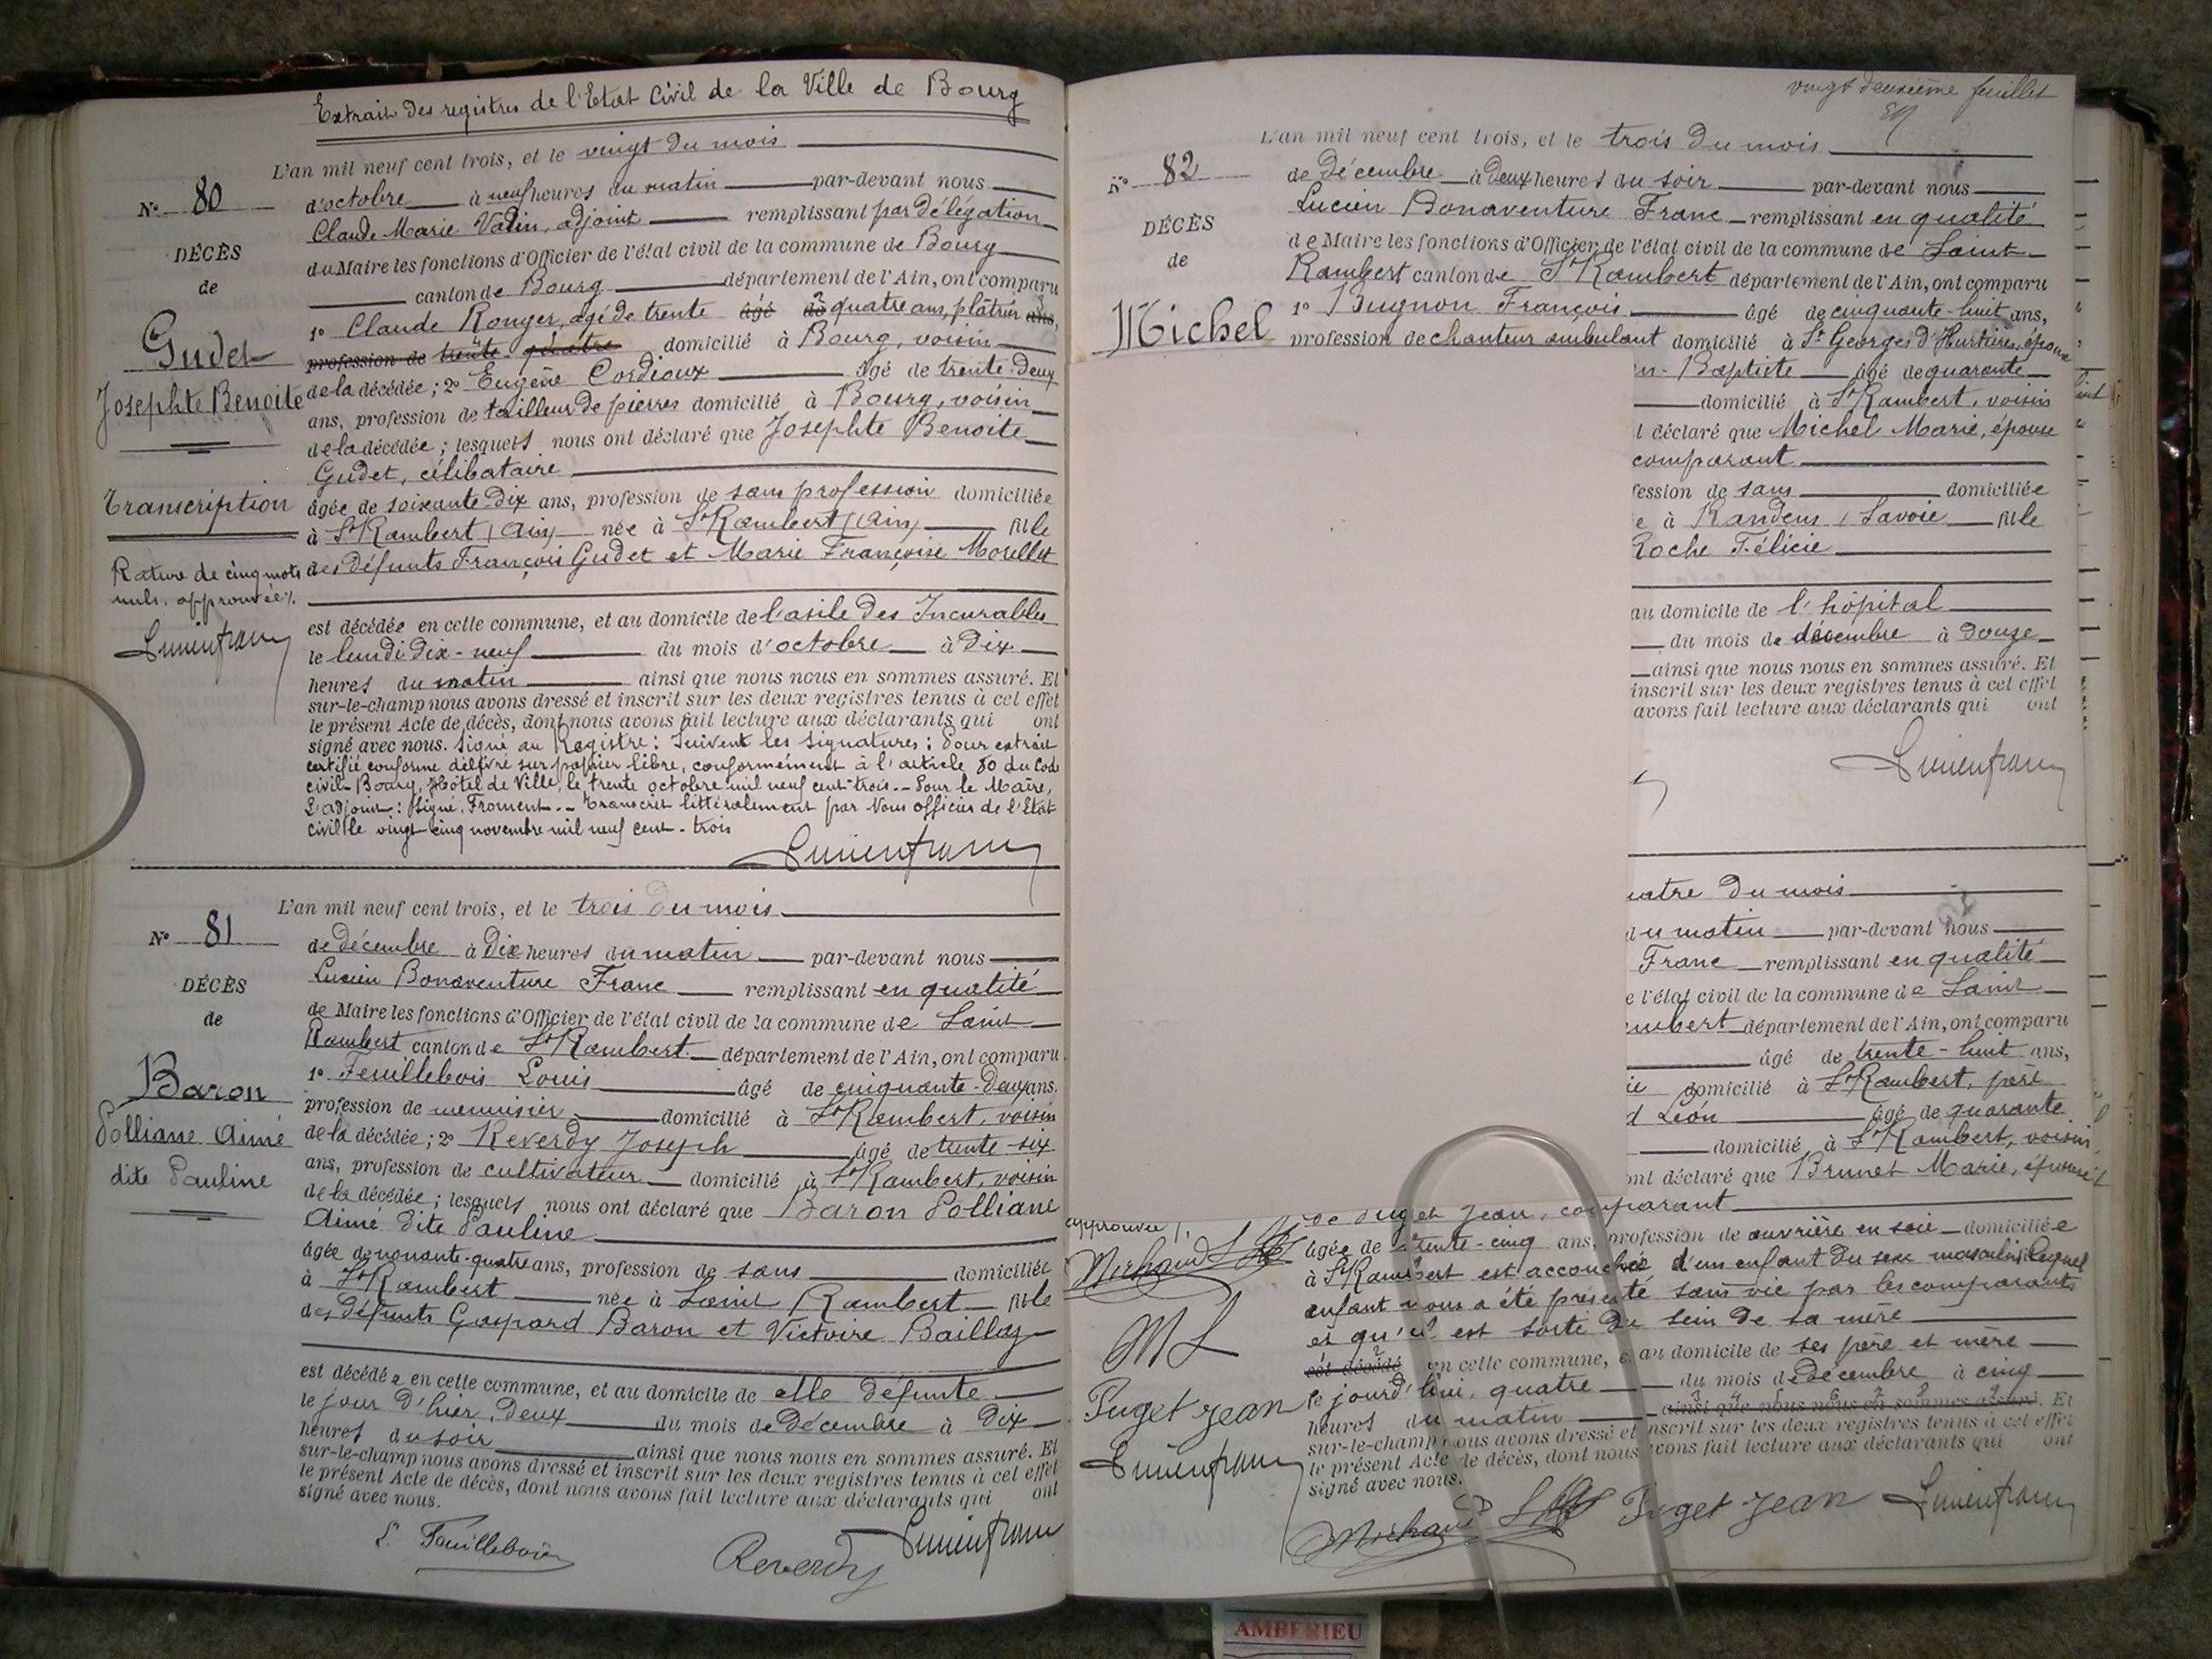 Extrait des registres de l'Etat Civil de la Ville de Bourg
L'an mil neuf cent trois, et le vingt du mois
N° 80
d'octobre à neuf heures du matin par-devant nous
Claude Marie Vadin, adjoint remplissant par délégation
DÉCÈS
du Maire les fonctions d'Officier de l'état civil de la commune de Bourg
de
canton de Bourg département de l'Ain, ont comparu
1° Claude Rouyer, agé de trente âgé de quatre ans, plâtrier ans,
Gudet
profession de trente quatre domicilié à Bourg, voisin
Josephte Benoite
de la décédée; 2° Eugène Cordioux âgé de trente-deux
ans, profession de tailleur de pierres domicilié à Bourg, voisin
de la décédée; lesquels nous ont déclaré que Josephte Benoite
Gudet, célibataire
Transcription
âgée de soixante-dix ans, profession de sans profession domiciliée
à St Rambert (Ain) née à St Rambert (Ain) fille
des défunts François Gudet et Marie Françoise Morellet
Rature de cinq mots
nuls. approuvée.
est décédée en cette commune, et au domicile de l'asile des Incurables
Lucien franc
le lundi dix-neuf du mois d'octobre à dix
heures du matin ainsi que nous nous en sommes assuré. Et
sur-le-champ nous avons dressé et inscrit sur les deux registres tenus à cet effet
le présent Acte de décès, dont nous avons fait lecture aux déclarants qui ont
signé avec nous. Signé au Registre: Suivent les signatures: Pour extrait
certifié conforme délivré sur papier libre, conformément à l'article 80 du Code
civil. Bourg, Hôtel de Ville, le trente octobre mil neuf cent-trois. - Pour le Maire,
L'adjoint: Signé. Froment. - Transcrit littéralement par Nous officier de l'Etat
civil le vingt cinq novembre mil neuf cent-trois
Lucien franc
L'an mil neuf cent trois, et le trois du mois
N° 81
de décembre à dix heures du matin par-devant nous
Lucien Bonaventure Franc remplissant en qualité
DÉCÈS
de Maire les fonctions d'Officier de l'état civil de la commune de Saint
de
Rambert canton de St Rambert département de l'Ain, ont comparu
1° Feuillebois Louis âgé de cinquante-deux ans.
Baron
profession de menuisier domicilié à St Rambert, voisin
Polliane Aimé
de la décédée; 2° Reverdy Joseph âgé de trente-six
dite Pauline
ans, profession de cultivateur domicilié à St Rambert, voisin
de la décédée; lesquels nous ont déclaré que Baron Polliane
Aimé dite Pauline
âgée de nonante-quatre ans, profession de sans domiciliée
à St Rambert née à Saint Rambert fille
des défunts Gaspard Baron et Victoire Baillay
est décédée en cette commune, et au domicile de elle défunte
le jour d'hier, deux du mois de décembre à dix
heures du soir ainsi que nous nous en sommes assuré. Et
sur-le-champ nous avons dressé et inscrit sur les deux registres tenus à cet effet
le présent Acte de décès, dont nous avons fait lecture aux déclarants qui ont
signé avec nous.
L. Feuillebois Reverdy Lucien franc
vingt deuxième feuillet
L'an mil neuf cent trois, et le trois du mois
N° 82
de décembre à deux heures du soir par-devant nous
Lucien Bonaventure Franc remplissant en qualité
DÉCÈS
de Maire les fonctions d'Officier de l'état civil de la commune de Saint
de
Rambert canton de St Rambert département de l'Ain, ont comparu
Michel
1° Bugnon François âgé de cinquante-huit ans,
profession de chanteur ambulant domicilié à St Georges d'Hurtières, époux
n-Baptiste âgé de quarante
domicilié à St Rambert, voisin
t déclaré que Michel Marie, épouse
comparant
fession de sans domiciliée
e à Randens (Savoie fille
Roche Félicie
au domicile de l'hôpital
du mois de décembre à douze
ainsi que nous nous en sommes assuré. Et
inscrit sur les deux registres tenus à cet effet
avons fait lecture aux déclarants qui ont
Lucien franc
uatre du mois
du matin par-devant nous
Franc remplissant en qualité
e l'état civil de la commune de Saint
ambert département de l'Ain, ont comparu
âgé de trente-huit ans,
ie domicilié à St Rambert, père
d Léon âgé de quarante
domicilié à St Rambert, voisin
ont déclaré que Brunet Marie, épouse
de Puget Jean, comparant
approuvée
âgée de trente-cinq ans, profession de ouvrière en soie domiciliée
Michaud
à St Rambert est accouchée d'un enfant du sexe masculin, lequel
enfant nous a été présenté sans vie par les comparants
et qu'il est sorti du sein de sa mère
ML
est décédé en cette commune, e au domicile de ses père et mère
Puget Jean
le jourd'hui, quatre du mois de décembre à cinq
heures du matin ainsi que nous nous en sommes assuré. Et
Lucien franc
sur-le-champ nous avons dressé et inscrit sur les deux registres tenus à cet effet
le présent Acte de décès, dont nous avons fait lecture aux déclarants qui ont
signé avec nous.
Michaud Puget Jean Lucien franc
AMBERIEU